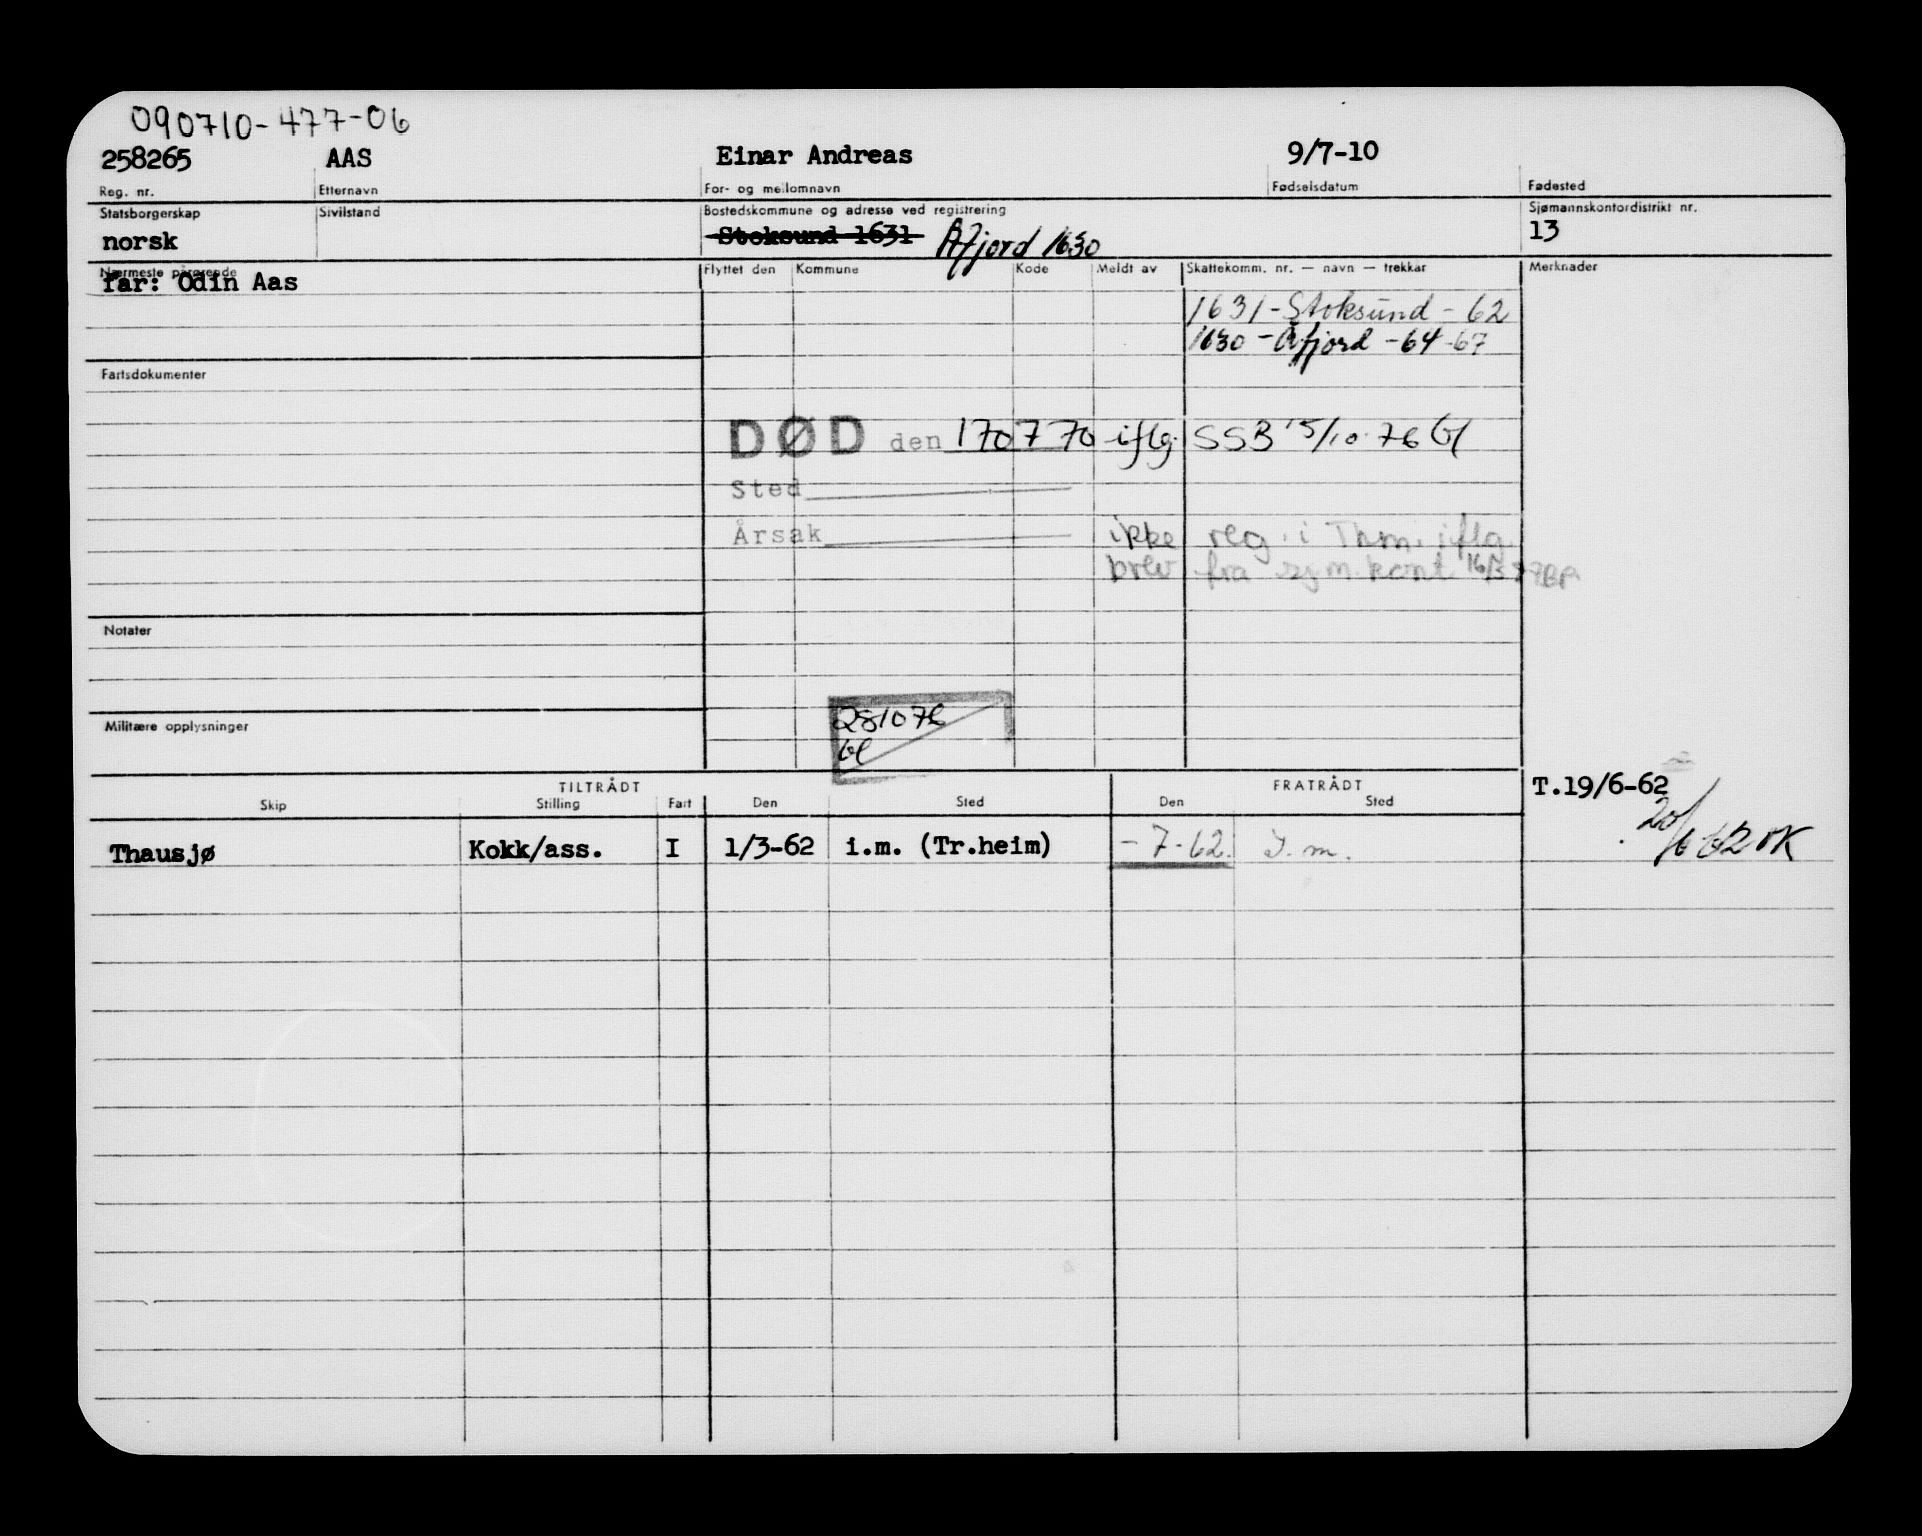 090710-477-06
258265 AAS Einar Andreas 9/7-10
Reg. nr. Etternavn For- og mellomnavn Fødselsdatum Fødested
Statsborgerskap Sivilstand Bostedskommune og adresse ved registrering Sjømannskontordistrikt nr.
norsk Stoksund 1631 Åfjord 1630 13
Nærmeste pårørende Flyttet den Kommune Kode Meldt av Skattekomm. nr. — navn — trekkår Merknader
far: Odin Aas
1631-Stoksund-62
1630-Åfjord-64-67
Fartsdokumenter
DØD den 170770 iflg. SSB 15/10-76
Sted
Årsak ikke reg. i Thm. iflg.
brev fra sjm.kont.
Notater
281076
Militære opplysninger
TILTRÅDT FRATRÅDT T.19/6-62
Skip Stilling Fart Den Sted Den Sted
20/6 62
Thausjø Kokk/ass. I 1/3-62 i.m. (Tr.heim) -7-62. I.m.